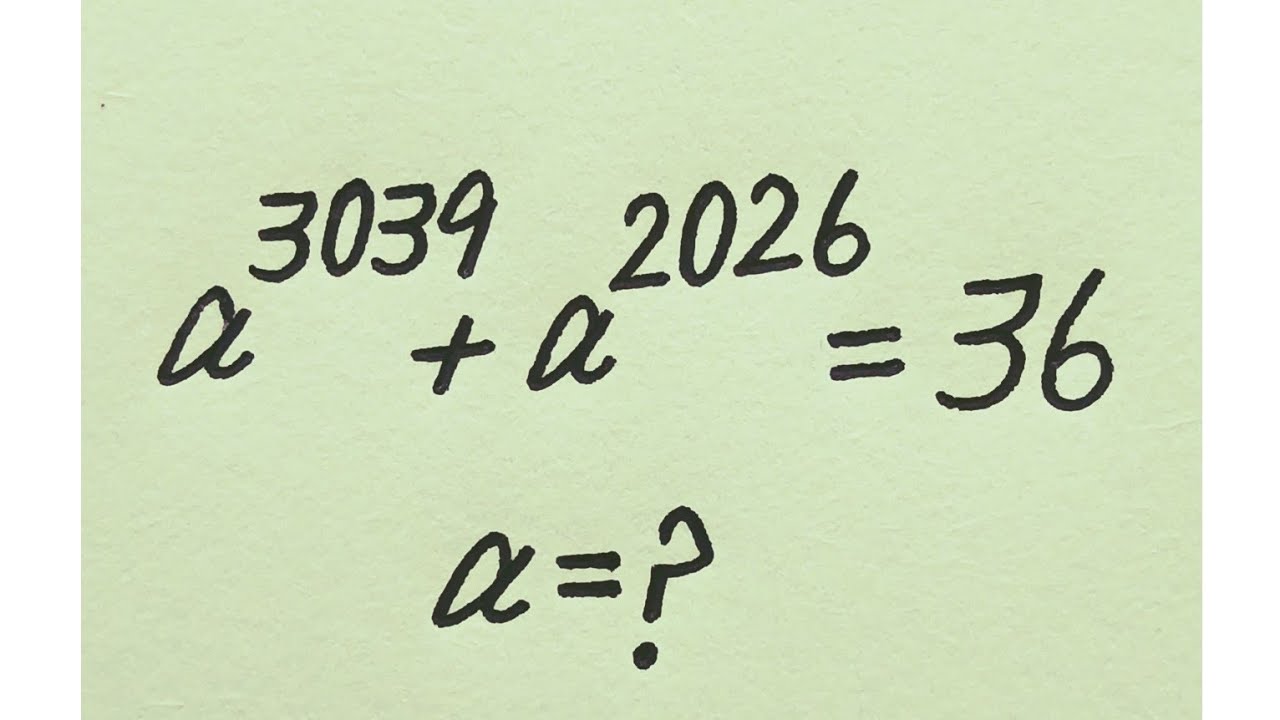 a³⁰³⁹ + a²⁰²⁶ = 36
a = ?